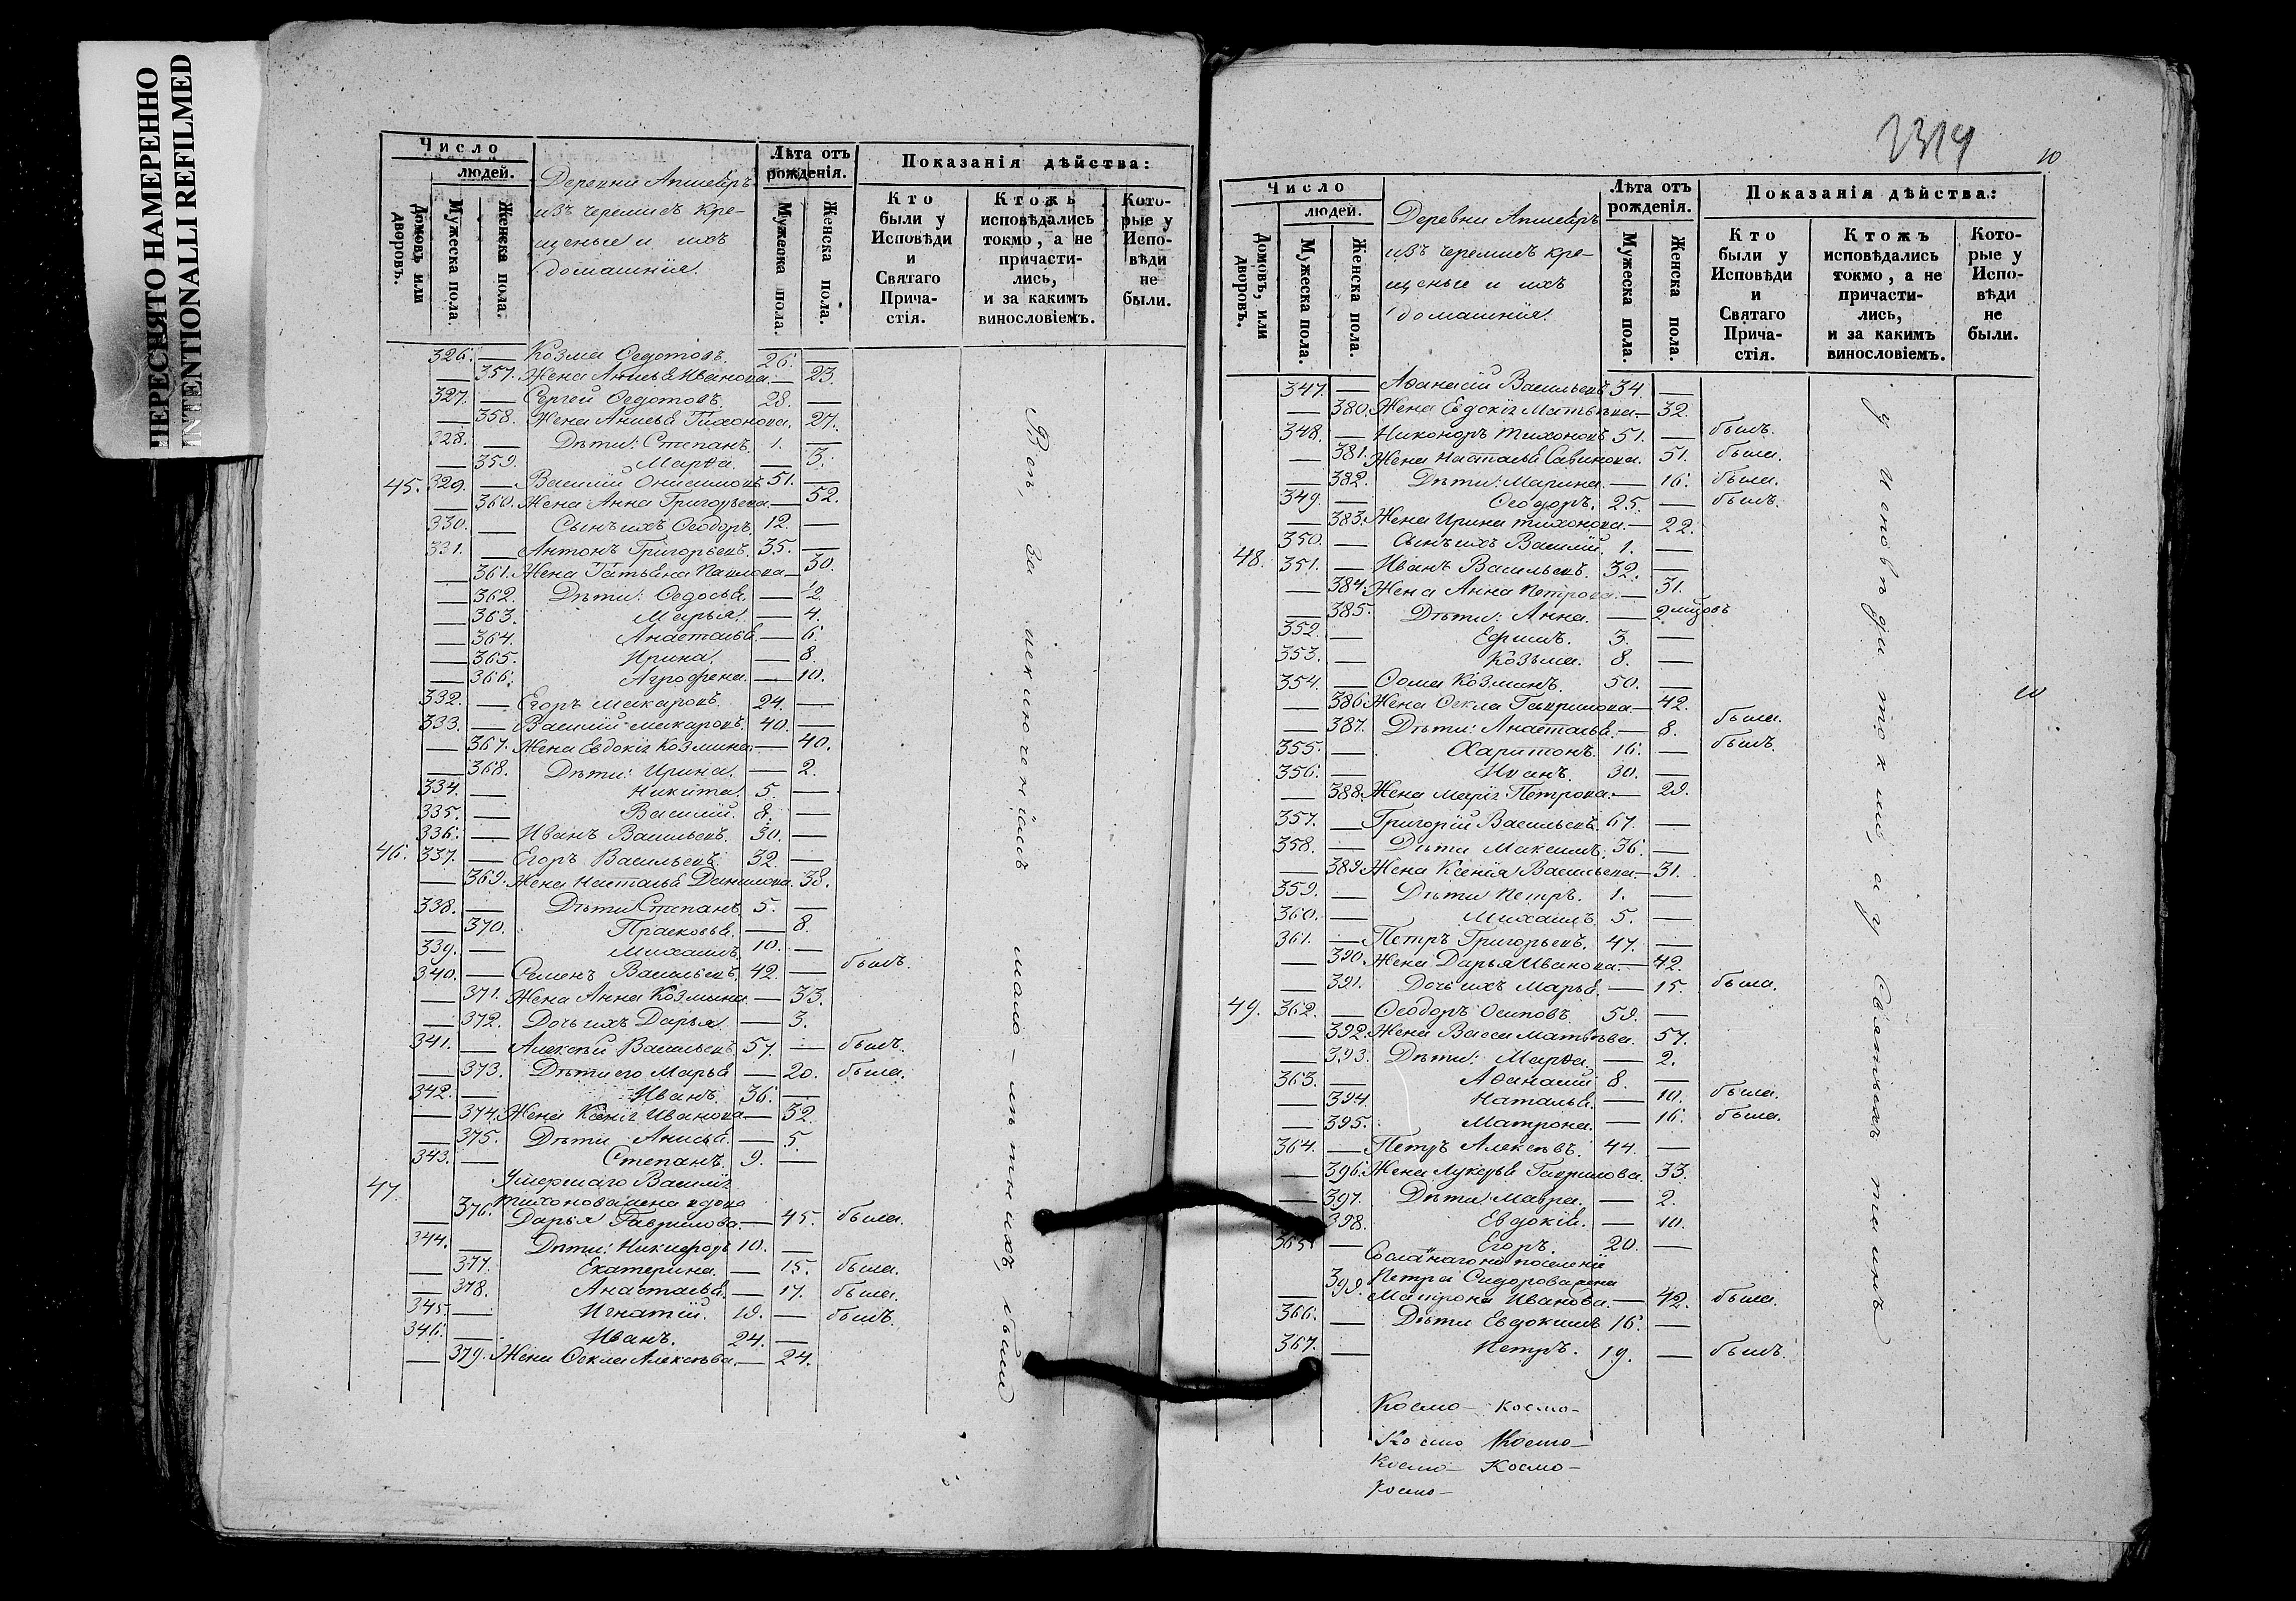 ПЕРЕСНЯТО НАМЕРЕННО
INTENTIONALLI REFILMED
Число
людей.
Домовъ или дворовъ.
Мужеска пола.
Женска пола.
Деревни Апшебръ
изъ черемисъ кре-
щеные и ихъ
домашнiя.
Лѣта отъ рожденiя.
Мужеска пола.
Женска пола.
Показанiя дѣйства:
Кто были у Исповѣди и Святаго Прича-стiя.
Ктожъ исповѣдались токмо, а не причасти-лись, и за какимъ винословiемъ.
Кото-рые у Испо-вѣди не были.
326. — Козма Ѳедотовъ. 26. —
— 357. Жена Анисья Иванова. — 23.
327. — Сергей Ѳедотовъ. 28. —
— 358. Жена Анисья Тихонова. 27.
328. — Дѣти: Степанъ. 1. —
— 359. Марѳа. — 3.
45. 329. — Василiй Онисимовъ 51. —
— 360. Жена Анна Григорьева — 52.
330. — Сынъ ихъ Ѳеодоръ. 12. —
331. — Антонъ Григорьевъ. 35. —
— 361. Жена Татьяна Павлова — 30.
— 362. Дѣти: Ѳедосья. — 1/2
— 363. Марья. — 4.
— 364. Анастасья. — 6.
— 365. Ирина. — 8.
— 366. Агрофена. — 10.
332. — Егоръ Макаровъ. 24. —
333. — Василiй Макаровъ. 40. —
— 367. Жена Евдокiя Козмина — 40.
— 368. Дѣти: Ирина. — 2.
334. — Никита. 5. —
335. — Василiй. 8. —
336. — Иванъ Васильевъ. 30. —
46. 337. — Егоръ Васильевъ. 32. —
— 369. Жена Настасья Данилова. 38.
338. — Дѣти Степанъ. 5. —
— 370. Прасковья. — 8.
339. — Михаилъ. 10. —
340. — Семенъ Васильевъ. 42. — былъ.
— 371. Жена Анна Козмина — 33.
— 372. Дочь ихъ Дарья. — 3.
341. — Алексѣй Васильевъ. 57. — былъ.
— 373. Дѣти его Марья — 20. была.
342. — Иванъ. 36. —
— 374. Жена Ксенiя Иванова — 32.
— 375. Дѣти Анисья. — 5.
343. — Степанъ. 9. —
47. Умершаго Василiя
Тихонова жена вдова
— 376. Дарья Гаврилова. — 45. была.
344. — Дѣти: Никифоръ 10. —
— 377. Екатерина. — 15. была.
— 378. Анастасья. — 17. была.
345. — Игнатiй. 19. — былъ.
346. — Иванъ. 24. —
— 379. Жена Ѳекла Алексѣева. — 24.
Всѣ, за исключенiемъ мало-лѣтнихъ, были
2314
10
Число
людей.
Домовъ, или дворовъ.
Мужеска пола.
Женска пола.
Деревни Апшебръ
изъ черемисъ кре-
щеные и ихъ
домашнiя.
Лѣта отъ рожденiя.
Мужеска пола.
Женска пола.
Показанiя дѣйства:
Кто были у Исповѣди и Святаго Прича-стiя.
Ктожъ исповѣдались токмо, а не причасти-лись, и за какимъ винословiемъ.
Кото-рые у Испо-вѣди не были.
347. — Аѳанасiй Васильевъ 34. —
— 380. Жена Евдокiя Матвѣева — 32.
348. — Никоноръ Тихоновъ 51. — былъ.
— 381. Жена Настасья Савинова. 51. была.
— 382. Дѣти: Марина. — 16. была.
349. — Ѳеодоръ. 25. — былъ.
— 383. Жена Ирина Тихонова — 22.
350. — Сынъ ихъ Василiй. 1. —
48. 351. — Иванъ Васильевъ. 32. —
— 384. Жена Анна Петрова. — 31.
— 385. Дѣти: Анна. — 2 мцовъ
352. — Ефимъ. 3. —
353. — Козьма. 8. —
354. — Ѳома Козминъ. 50. —
— 386. Жена Ѳекла Гаврилова — 42.
— 387. Дѣти: Анастасья. — 8. была.
355. — Харитонъ. 16. — былъ.
356. — Иванъ. 30. —
— 388. Жена Марiя Петрова. — 29.
357. — Григорiй Васильевъ. 67. —
358. — Дѣти Максимъ. 36. —
— 389. Жена Ксенiя Васильева. — 31.
359. — Дѣти Петръ. 1. —
360. — Михаилъ 5. —
361. — Петръ Григорьевъ. 47. —
— 390. Жена Дарья Иванова. — 42.
— 391. Дочь ихъ Марья. — 15. была.
49. 362. — Ѳеодоръ Осиповъ. 59. —
— 392. Жена Васса Матвѣева. 57.
— 393. Дѣти: Марѳа. — 2.
363. — Аѳанасiй 8. —
— 394. Наталья. — 10. была.
— 395. Матрона. — 16. была.
364. — Петръ Алексѣевъ. 44. —
— 396. Жена Лукерья Гаврилова. 33.
— 397. Дѣти: Мавра. — 2.
398. Евдокiя. — 10.
365. — Егоръ. 20. —
Сосланаго на поселенiе
Петра Сидорова жена
— 399. Матрона Иванова. — 42. была.
366. — Дѣти Евдокимъ 16. —
367. — Петръ. 19. — былъ.
у исповѣди токмо, а у Святыхъ таинъ
10
Космо- космо-
Космо Космо-
космо- Космо-
космо-